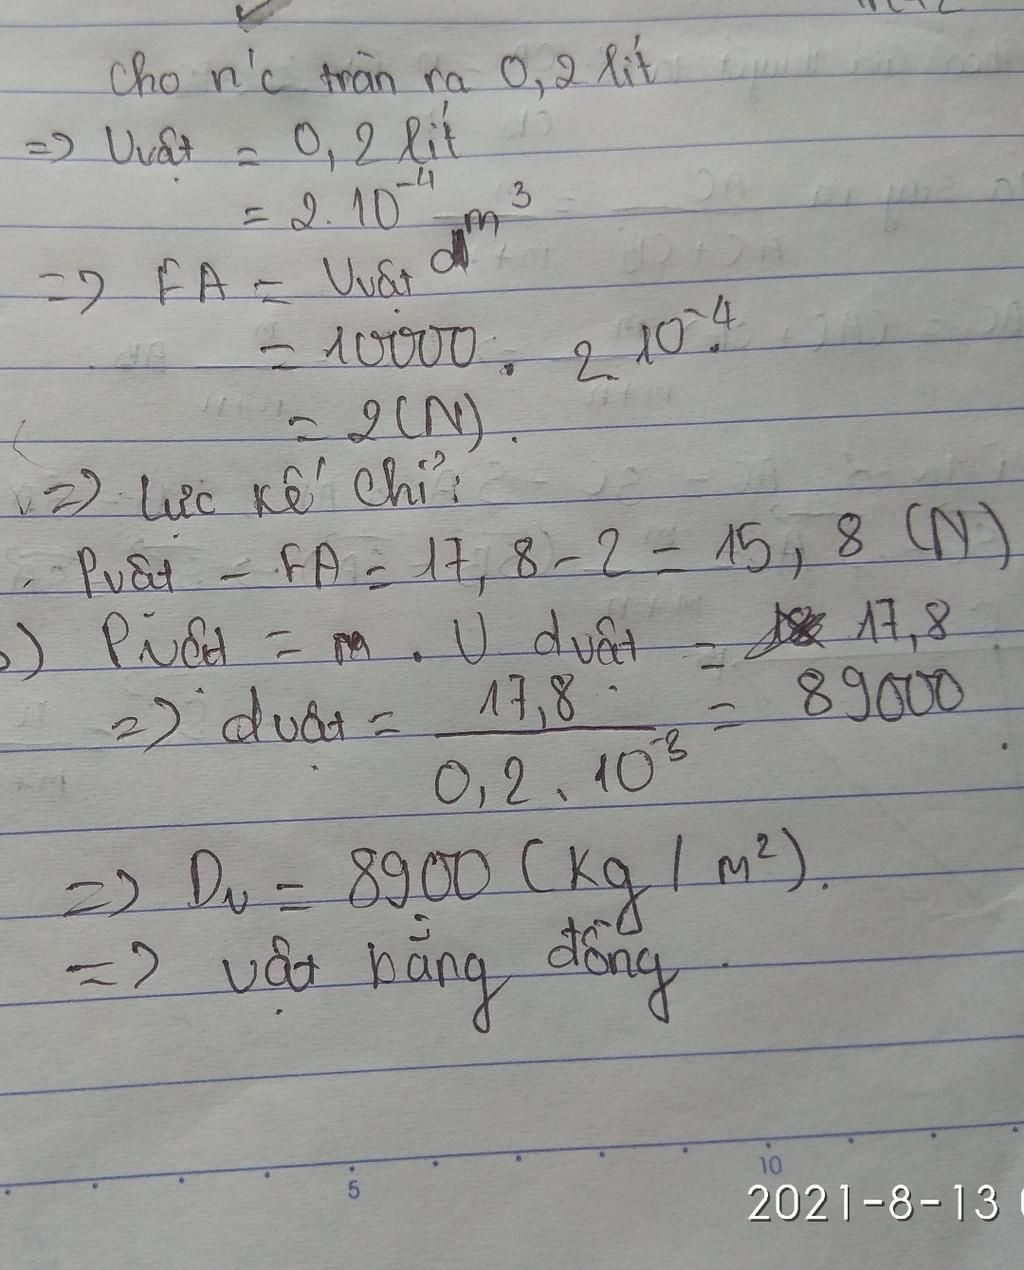 Cho n'c tràn ra 0,2 lít
=> Vvật = 0,2 lít
= 2.10⁻⁴ m³
=> FA = Vvật d
= 10000 . 2.10⁻⁴
= 2(N).
=> Lực kế chỉ:
Pvật - FA = 17,8 - 2 = 15,8 (N)
) Pvật = . V dvật = 17,8
=> dvật = 17,8 / 0,2.10⁻³ = 89000
=> Dv = 8900 (kg / m²).
=> vật bằng đồng.
5 10
2021-8-13